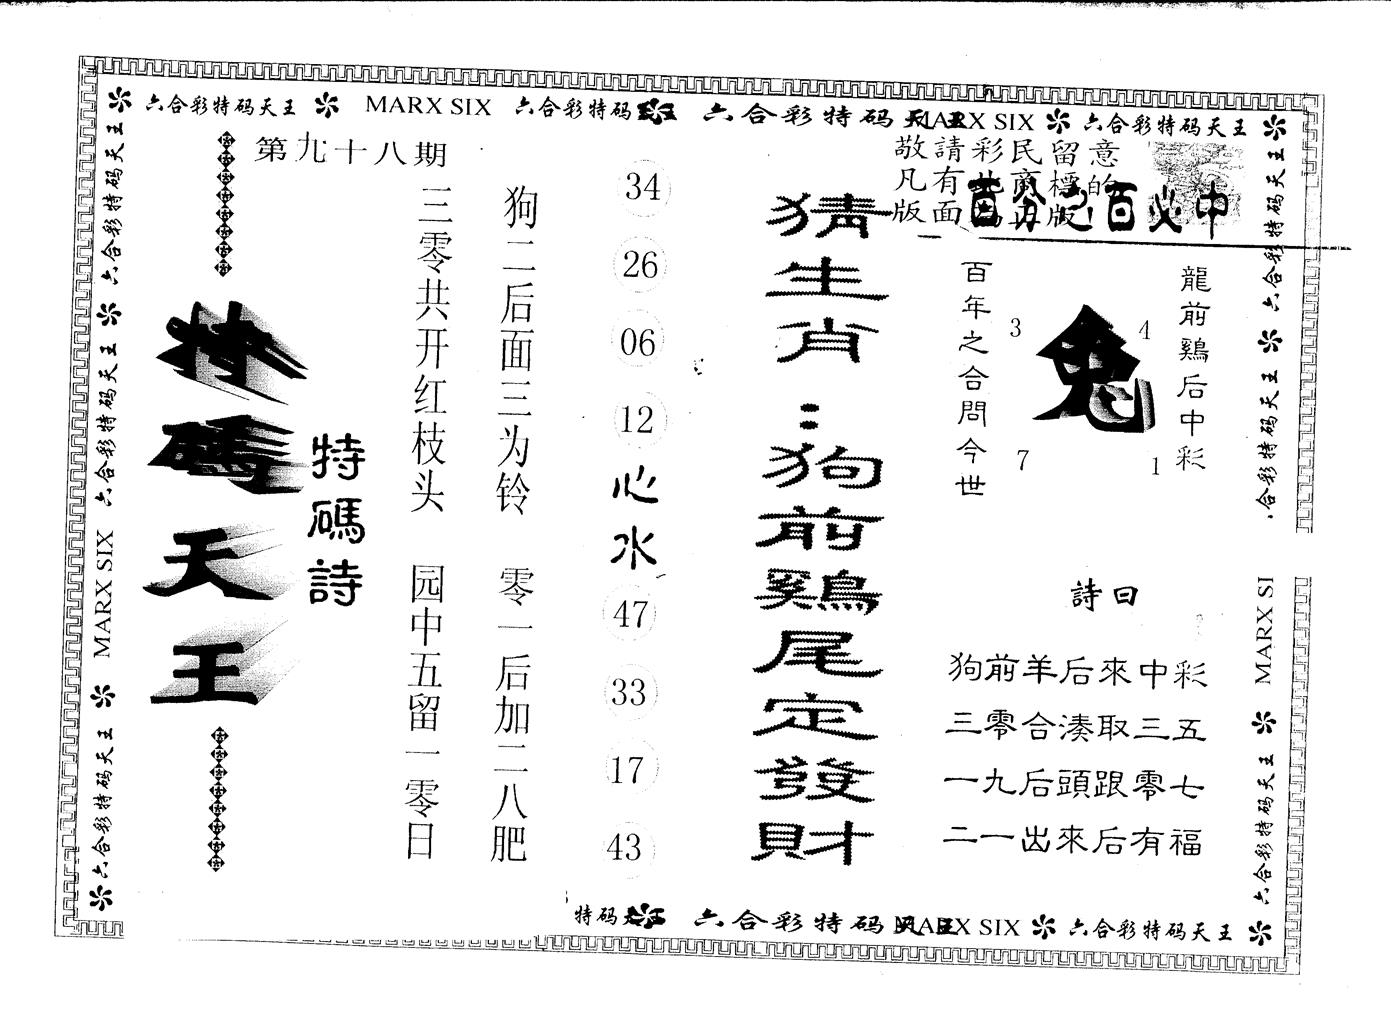 六合彩特码天王 MARX SIX 六合彩特码 六合彩特码天王 MARX SIX 六合彩特码天王
第九十八期
敬請彩民留意
凡有
版面
百分之百必中
龍前鷄后中彩
兔
4
3
1
7
百年之合問今世
詩曰
狗前羊后來中彩
三零合湊取三五
一九后頭跟零七
二一出來后有福
猜生肖：狗前鷄尾定發財
34
26
06
12
心水
47
33
17
43
狗二后面三为铃 零一后加二八肥
三零共开红枝头 园中五留一零日
特碼詩
特碼天王
六合彩特码天王
六合彩特码天王
MARX SIX
六合彩特码天王
六合彩特码天王
合彩特码天王
MARX SI
六合彩特码天王
特码 六合彩特码天王 MARX SIX 六合彩特码天王